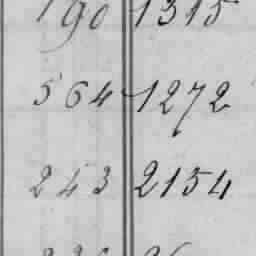 190 1315
564 1272
243 2154